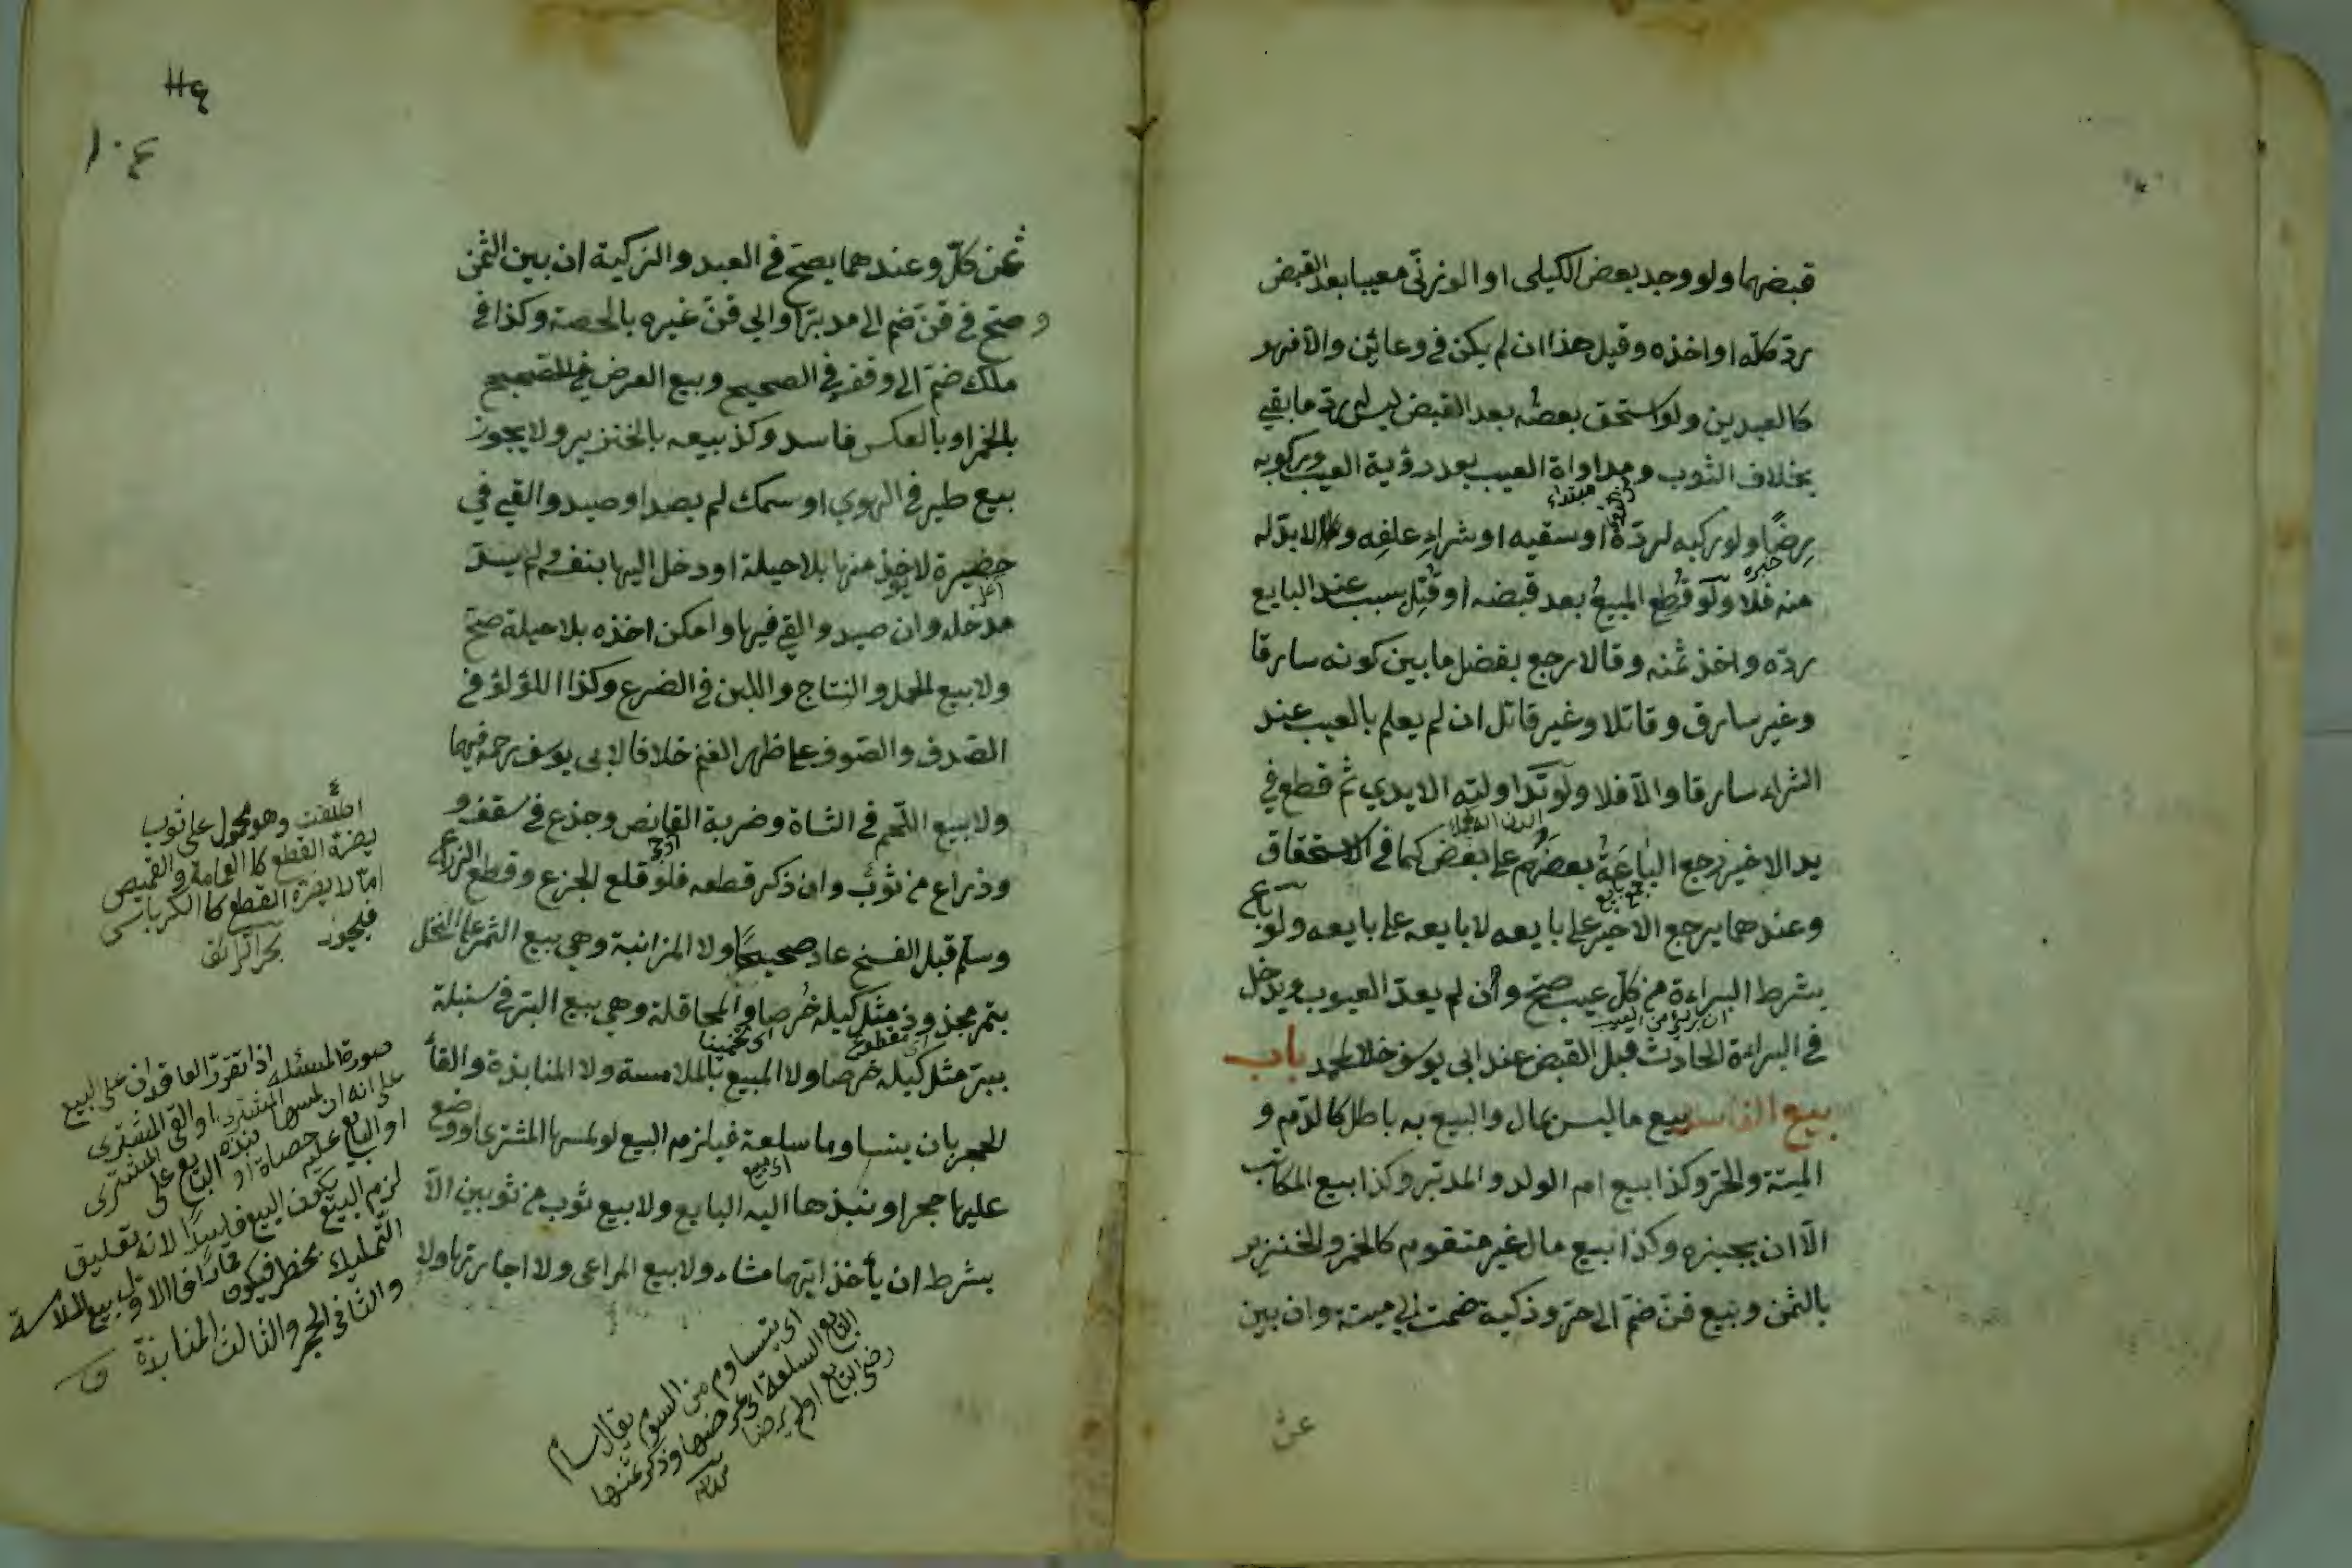 قبضهما ولو وجد بعض الكيلي او الوزني معيبا بعد القبض
ردّ كلّه او اخذه وقيل هذا ان لم يكن في وعائين والّا فهو
كالعبدين ولو استحق بعضه بعد القبض ليس له ردّ ما بقي
بخلاف الثوب ومداواة العيب بعد رؤية العيب وركوبه
مبتداء
رِضًا ولو ركبه لردّه او سقيه او شراءِ علفِه ولا بدّ له
خبره
منه فلا ولو قُطع المبيعُ بعد قبضه او قُتِل بسبب عند البايع
ردّه واخذ ثمنه وقالا يرجع بفضل ما بين كونه سارقا
وغير سارق وقاتلا وغير قاتل ان لم يعلم بالعيب عند
الشراء سارقا والّا فلا ولو تداولته الايدي ثم قطع في
يد الاخير رجع الباعَةُ بعضهم على بعض كما في الاستحقاق
جمع بايع
وعندهما يرجع الاخير على بايعه لا بايعه على بايعه ولو باع
بشرط البراءة من كلّ عيب صحّ وان لم يعدّ العيوب ويدخل
في البراءة الحادث قبل القبض عند ابي يوسف خلافا لمحمد باب
بيع الفاسد بيع ما ليس بمال والبيع به باطل كالدّم و
الميتة والحرّ وكذا بيع ام الولد والمدبّر وكذا بيع المكاتب
الّا ان يجيزه وكذا بيع مال غير متقوم كالخمر والخنزير
بالثمن وبيع قنّ ضمّ الى حرّ وذكية ضمت الى ميتة وان بين
١٠٤
ثمن كلّ وعندهما يصحّ في العبد والزكية ان بين الثمن
وصحّ في قنّ ضم الى مدبّر او الى قنّ غيره بالحصة وكذا في
ملك ضمّ الى وقف في الصحيح وبيع العرض
بالخمر او بالعكس فاسد وكذ بيعه بالخنزير ولا يجوز
بيع طير في الهوي او سمك لم يصد او صيد والقي في
حضيرة لا يؤخذ منها بلا حيلة او دخل اليها بنفسه ولم يسدّ
مدخله وان صيد والقي فيها وامكن اخذه بلا حيلة صحّ
ولا بيع الحمل والنتاج واللبن في الضرع وكذا اللؤلؤ في
الصّدف والصّوف على ظهر الغنم خلافا لابي يوسف رحمه فيهما
ولا بيع اللّحم في الشاة وضربة القانص وجذع في سقف و
وذراع من ثوب وان ذكر قطعه فلو قلع الجزع وقطع الذراع
وسلّم قبل الفسخ عاد صحيحًا ولا المزابنة وهي بيع الثمر على النخل
بتمر مجذوذ مثل كيله خرصا والمحاقلة وهي بيع البرّ في سنبلة
اى تخمينا
ببرّ مثل كيله خرصا ولا المبيع بالملامسة ولا المنابذة والقأ
الحجر بان يتساوما سلعة فيلزم البيع لو لمسها المشترى او وضع
عليها حجرا ونبذها اليه البايع ولا بيع ثوب من ثوبين الّا
بشرط ان يأخذ ايهما شاء ولا بيع المراعى ولا اجارتها ولا
اطلقت وهو محمول على ثوب
يضرّه القطع كالعمامة والقميص
امّا لا يضرّه القطع كالكرباس
فيجوز بحر الرائق
صورة المسئله اذا تقرّر العاقدان على البيع
على انه ان لمسها المشترى او القى المشترى
او البايع عليه حصاة او نبذه البايع على المشترى
لزم البيع يكون البيع فاسدًا لانه تعليق
التمليك بخطر فيكون قمارًا فالاول بيع الملامسة
والثانى الحجر والثالث المنابذة
اى يتساوم من السوم يقال سأم
البايع السلعة اى عرضها وذكر ثمنها
رضى البايع اولم يرضا